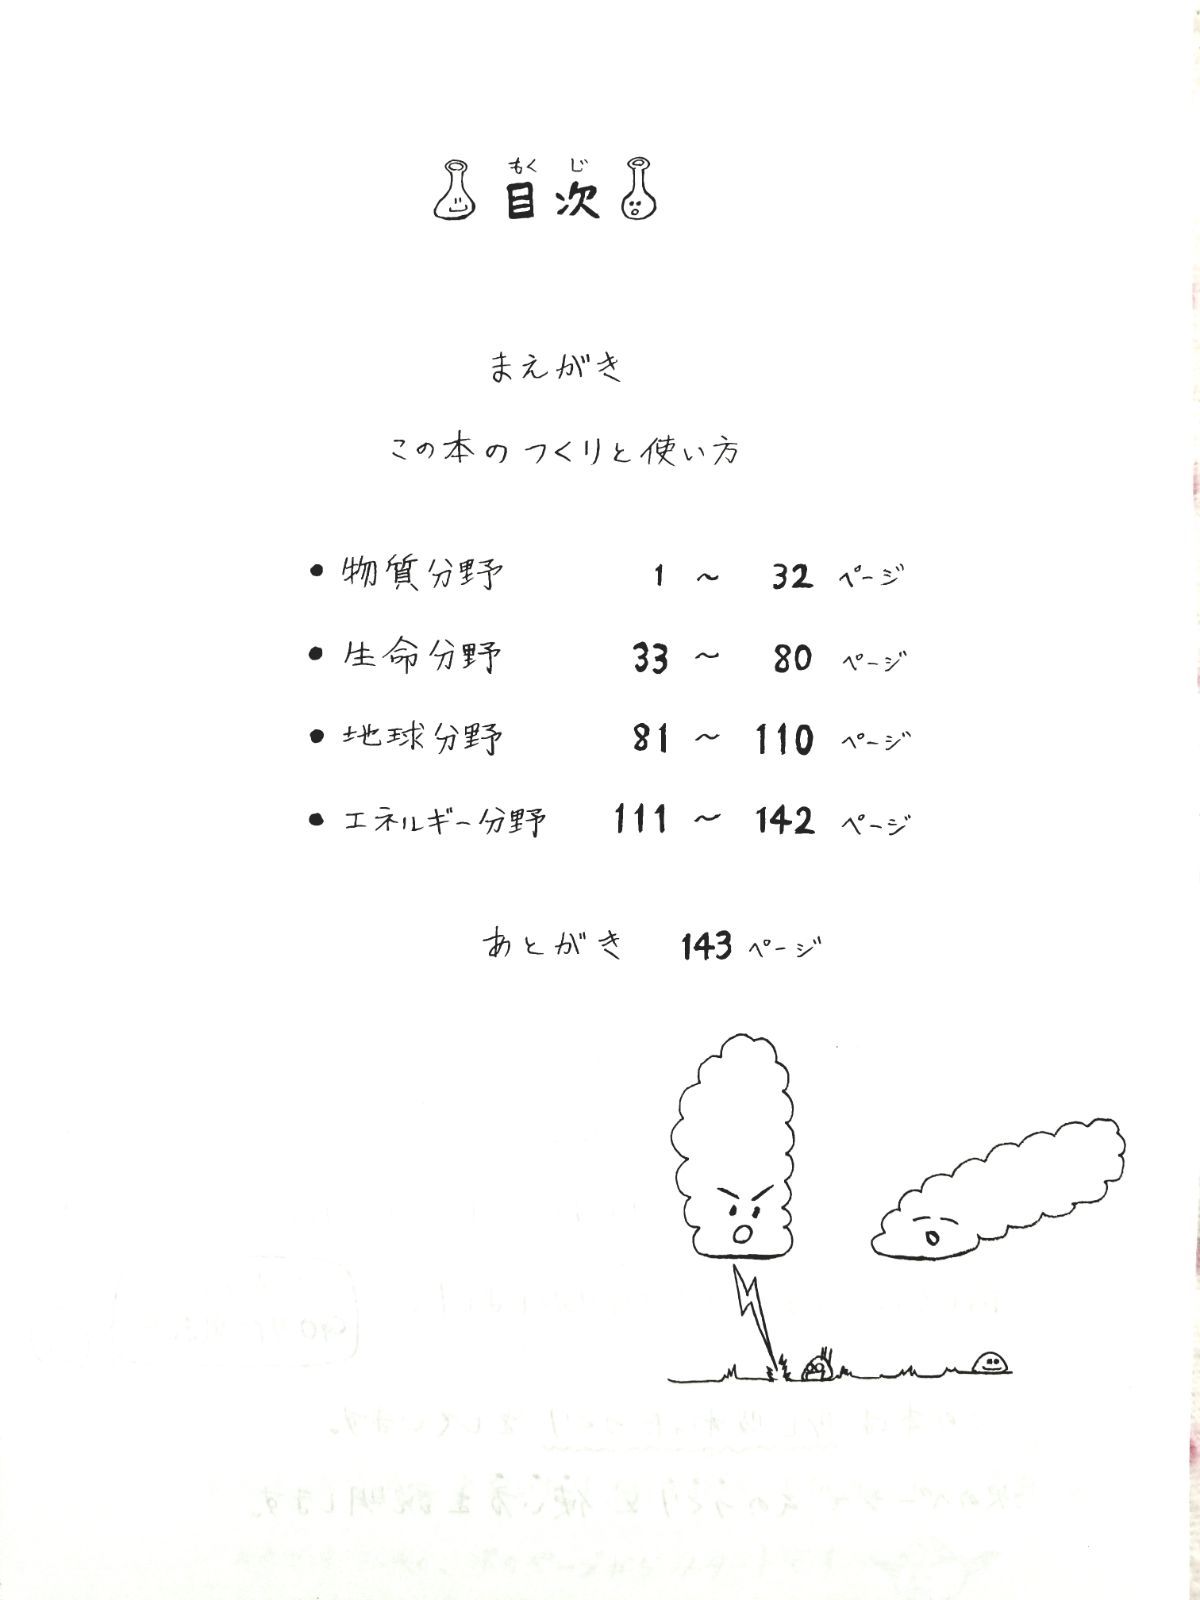 もくじ
目次
まえがき
この本のつくりと使い方
● 物質分野 1 ～ 32 ページ
● 生命分野 33 ～ 80 ページ
● 地球分野 81 ～ 110 ページ
● エネルギー分野 111 ～ 142 ページ
あとがき 143 ページ